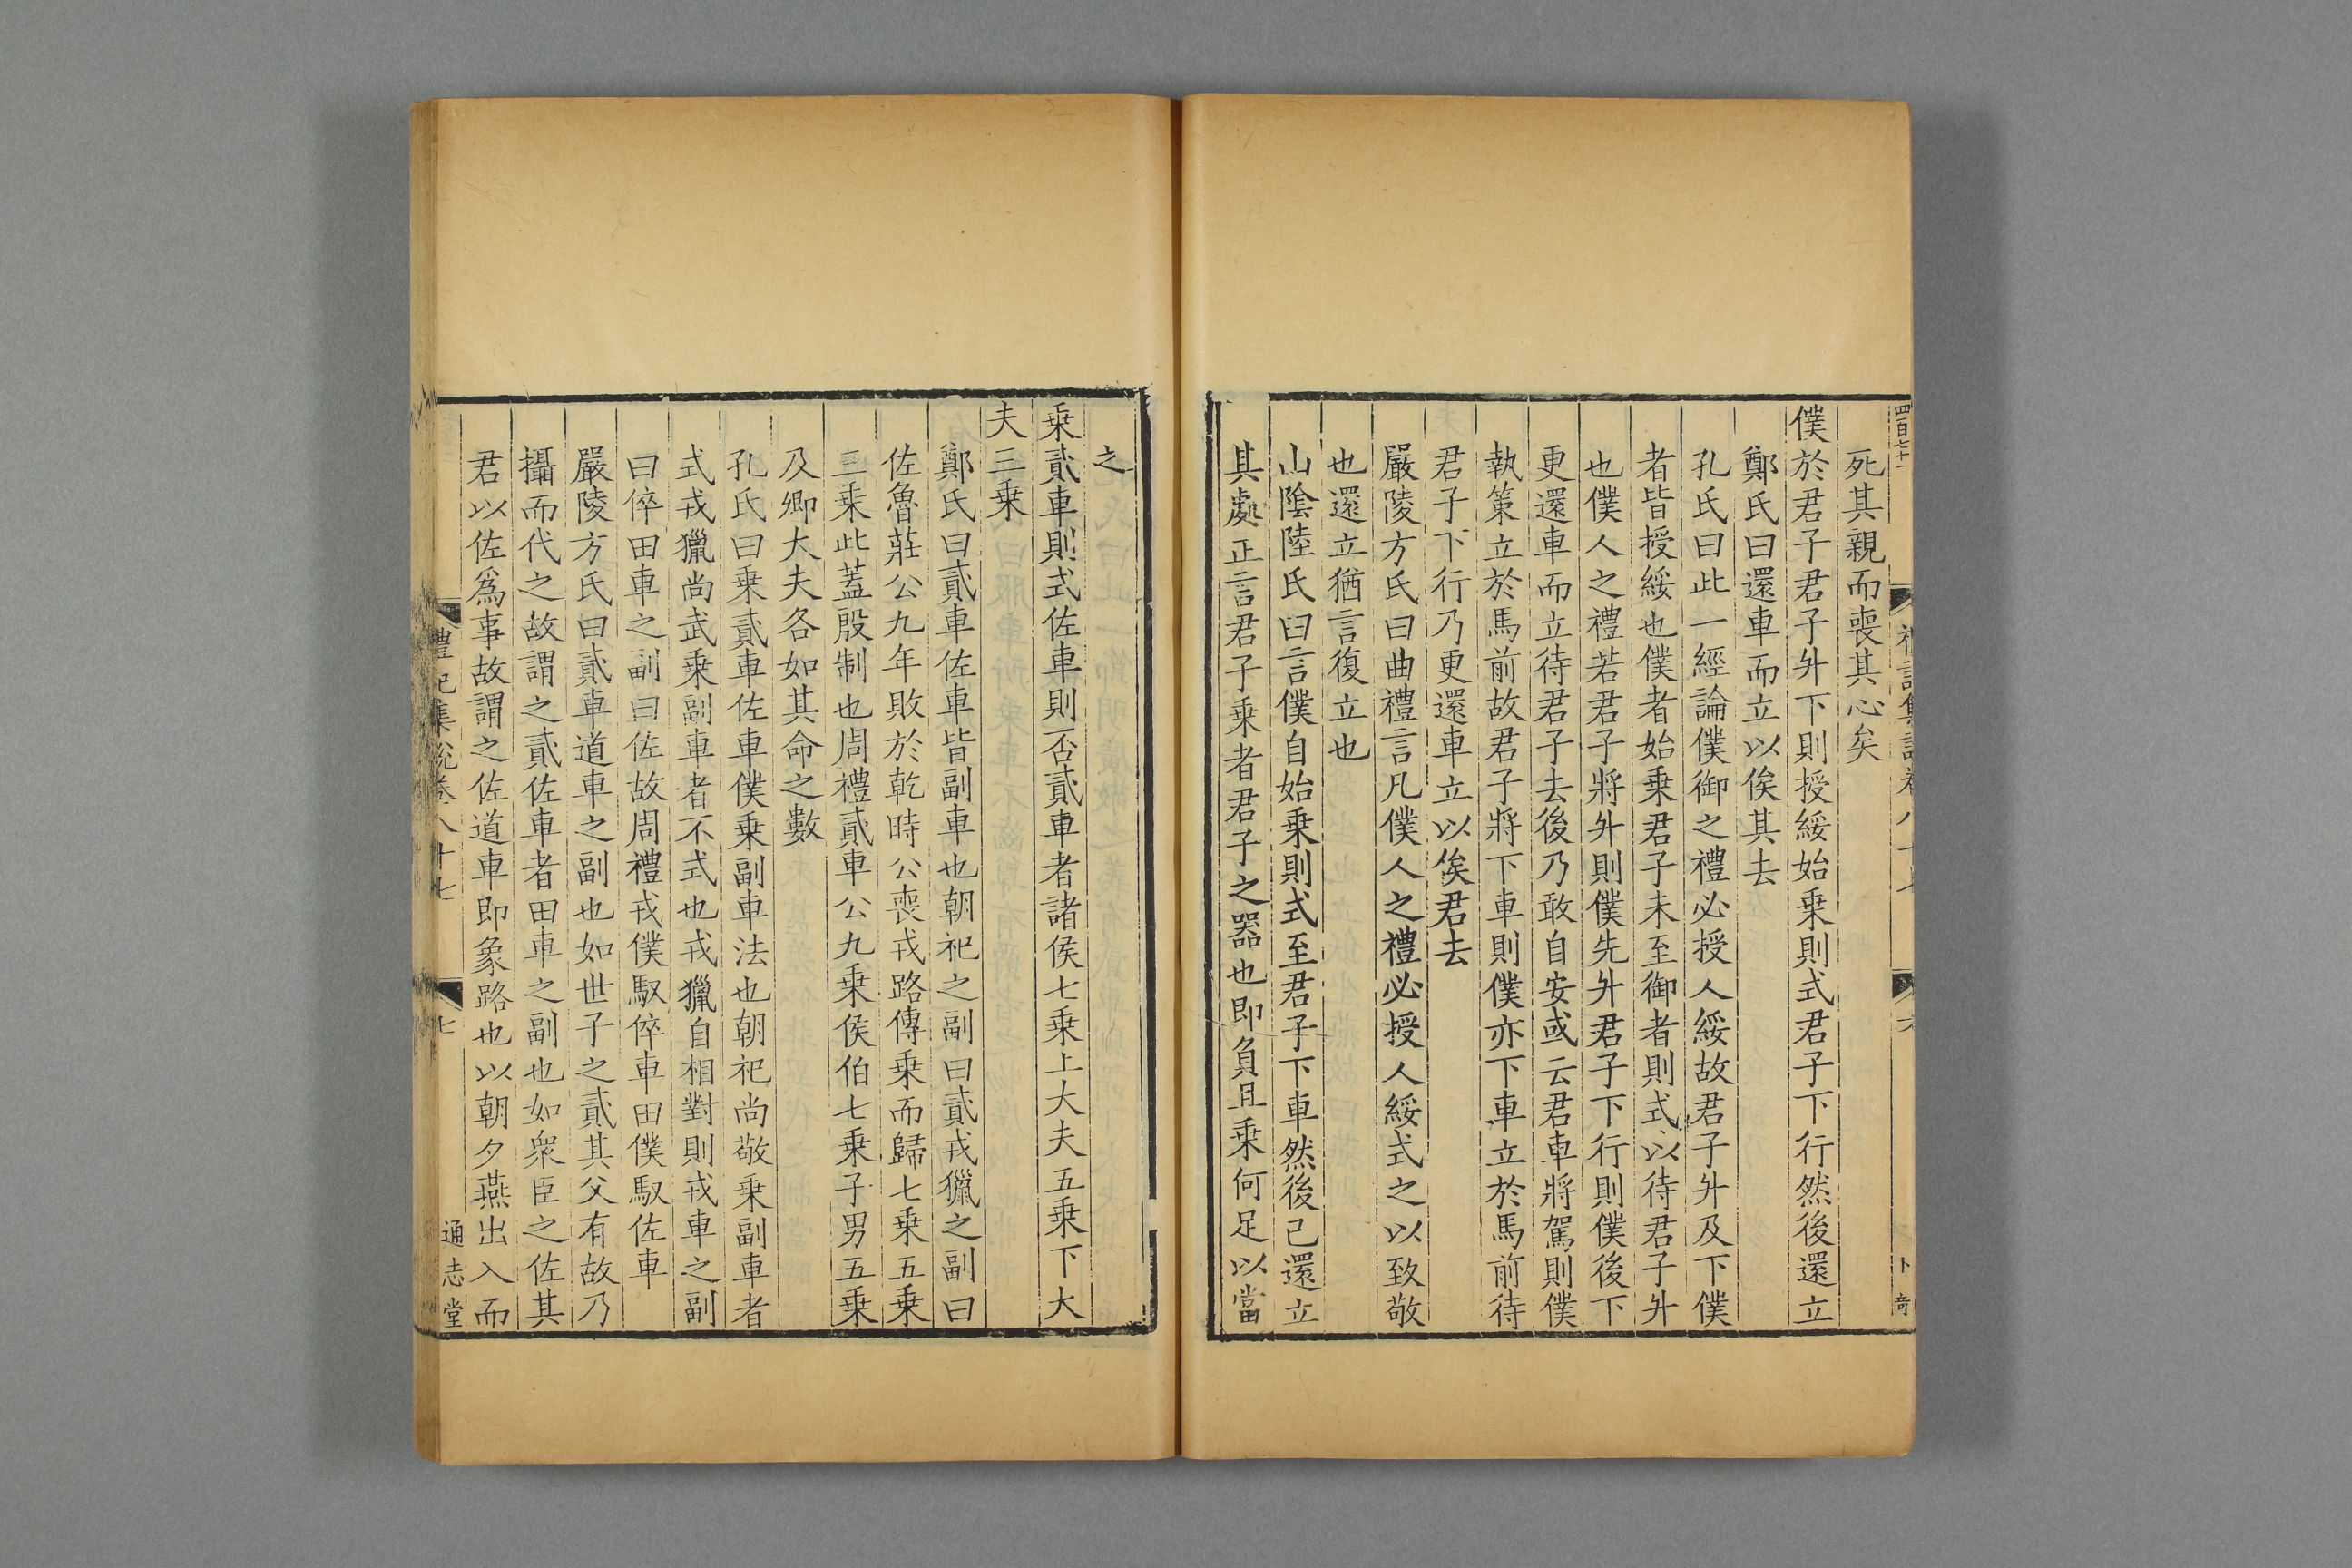 四百七十一
死其親而喪其心矣
僕於君子君子升下則授綏始乗則式君子下行然後還立
鄭氏曰還車而立以俟其去
孔氏曰此一經論僕御之禮必授人綏故君子升及下僕
者皆授綏也僕者始乗君子未至御者則式以待君子升
也僕人之禮若君子將升則僕先升君子下行則僕後下
更還車而立待君子去後乃敢自安或云君車將駕則僕
執策立於馬前故君子將下車則僕亦下車立於馬前待
君子下行乃更還車立以俟君去
嚴陵方氏曰曲禮言凡僕人之禮必授人綏式之以致敬
也還立猶言復立也
山隂陸氏曰言僕自始乗則式至君子下車然後已還立
其處正言君子乗者君子之器也即負且乗何足以當
之
乗貳車則式佐車則否貳車者諸侯七乗上大夫五乗下大
夫三乗
鄭氏曰貳車佐車皆副車也朝祀之副曰貳戎獵之副曰
佐魯莊公九年敗於乾時公喪戎路傳乗而歸七乗五乗
三乗此蓋殷制也周禮貳車公九乗侯伯七乗子男五乗
及卿大夫各如其命之數
孔氏曰乗貳車佐車僕乗副車法也朝祀尚敬乗副車者
式戎獵尚武乗副車者不式也戎獵自相對則戎車之副
曰倅田車之副曰佐故周禮戎僕馭倅車田僕馭佐車
嚴陵方氏曰貳車道車之副也如世子之貳其父有故乃
攝而代之故謂之貳佐車者田車之副也如衆臣之佐其
君以佐爲事故謂之佐道車即象路也以朝夕燕出入而
禮記集說卷八十七 七 通志堂